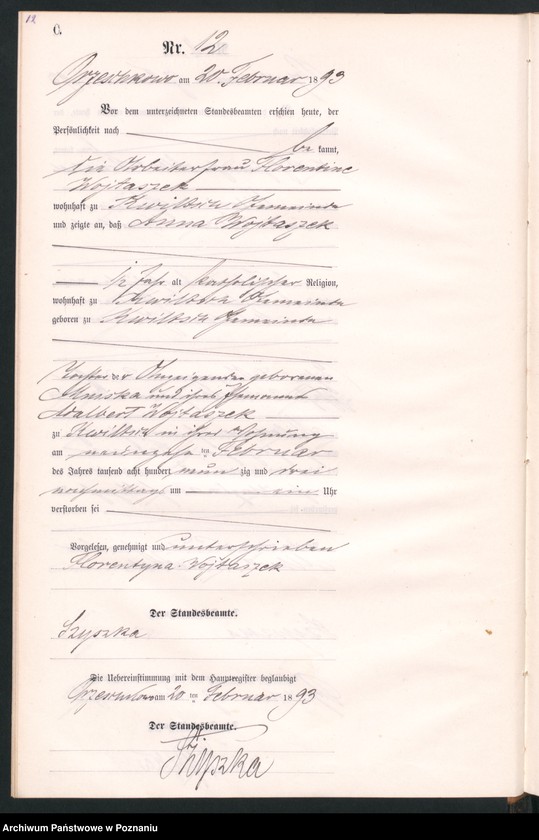 12.
C.
Nr. 12
Orzeschkowo am 20. Februar 1893
Vor dem unterzeichneten Standesbeamten erschien heute, der
Persönlichkeit nach be kannt,
die Arbeiterfrau Florentine
Wojtaszek
wohnhaft zu Kwiltsch Gemeinde
und zeigte an, daß Anna Wojtaszek
1/2 Jahr alt katholischer Religion,
wohnhaft zu Kwiltsch Gemeinde
geboren zu Kwiltsch Gemeinde
Tochter der Anzeigenden geborenen
und ihres Ehemannes
Adalbert Wojtaszek
zu Kwiltsch in ihrer Wohnung
am neunzehn ten Februar
des Jahres tausend acht hundert neun zig und drei
nachmittags um ein Uhr
verstorben sei
Vorgelesen, genehmigt und unterschrieben
Florentyna Wojtaszek
Der Standesbeamte.
Szyszka
Die Uebereinstimmung mit dem Hauptregister beglaubigt
Orzeschkowo am 20. ten Februar 1893
Der Standesbeamte.
Szyszka
Archiwum Państwowe w Poznaniu